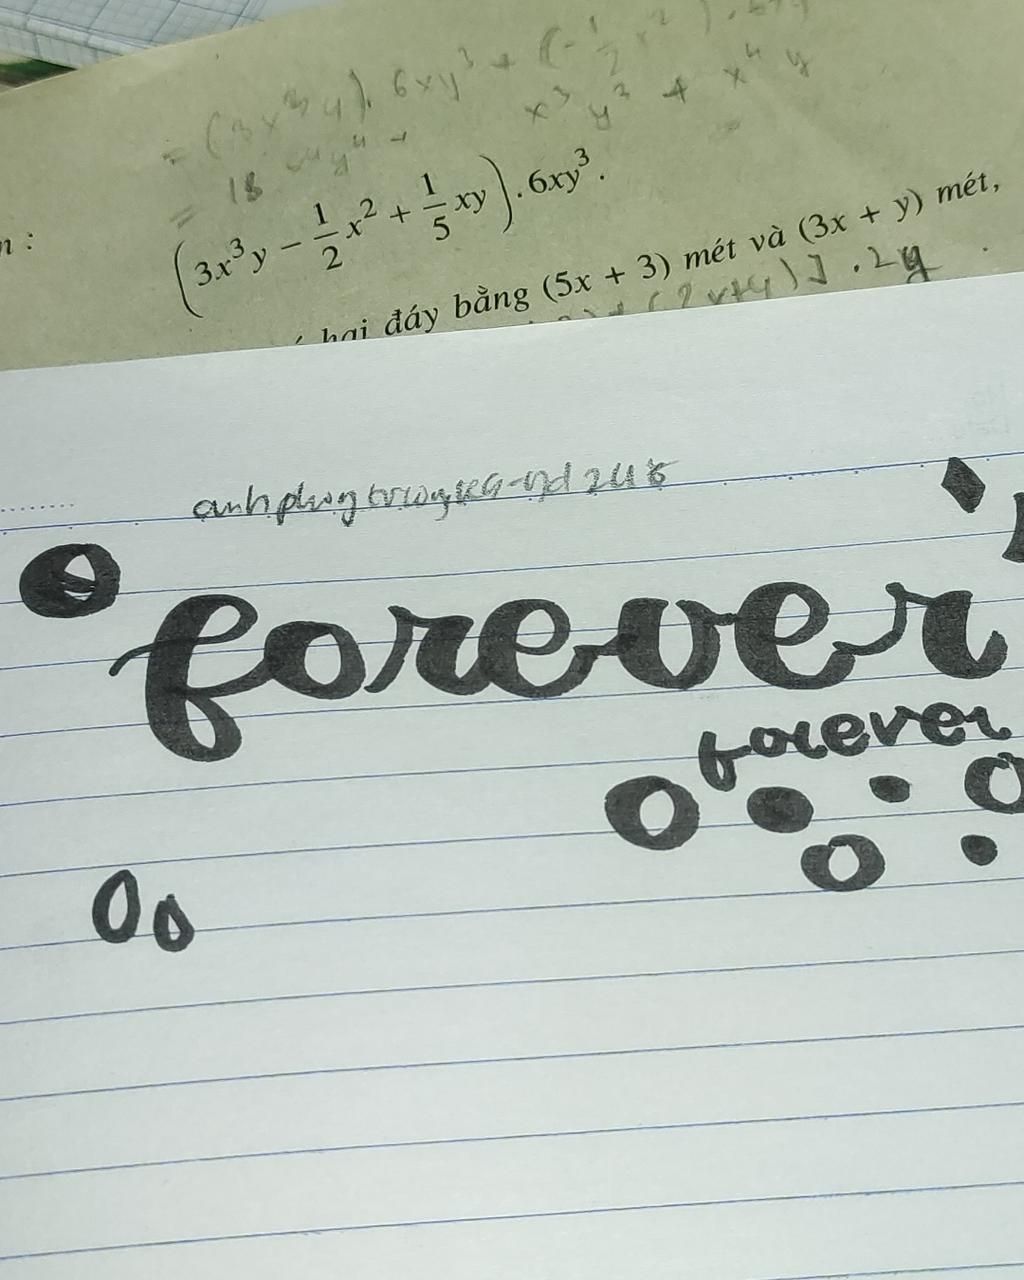 = (3x³y). 6xy³ + (-1/2 x²). 6xy
= 18 x⁴y⁴ + x³ y³ + x⁴ y
n :
(3x³y − 1/2 x² + 1/5 xy) . 6xy³.
hai đáy bằng (5x + 3) mét và (3x + y) mét,
(2x+y)] . 2y
forever
forever